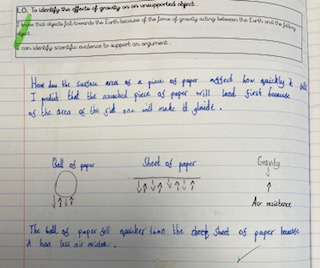 L.O: To identify the effects of gravity on an unsupported object.
I know that objects fall towards the Earth because of the force of gravity acting between the Earth and the falling
object.
I can identify scientific evidence to support an argument.
How does the surface area of a piece of paper affect how quickly it
I predict that the scrunched piece of paper will land first because
of the area of the flat one will make it glide.
Ball of paper Sheet of paper Gravity
Air resistance
The ball of paper fell quicker than the sheet of paper because
it has less air